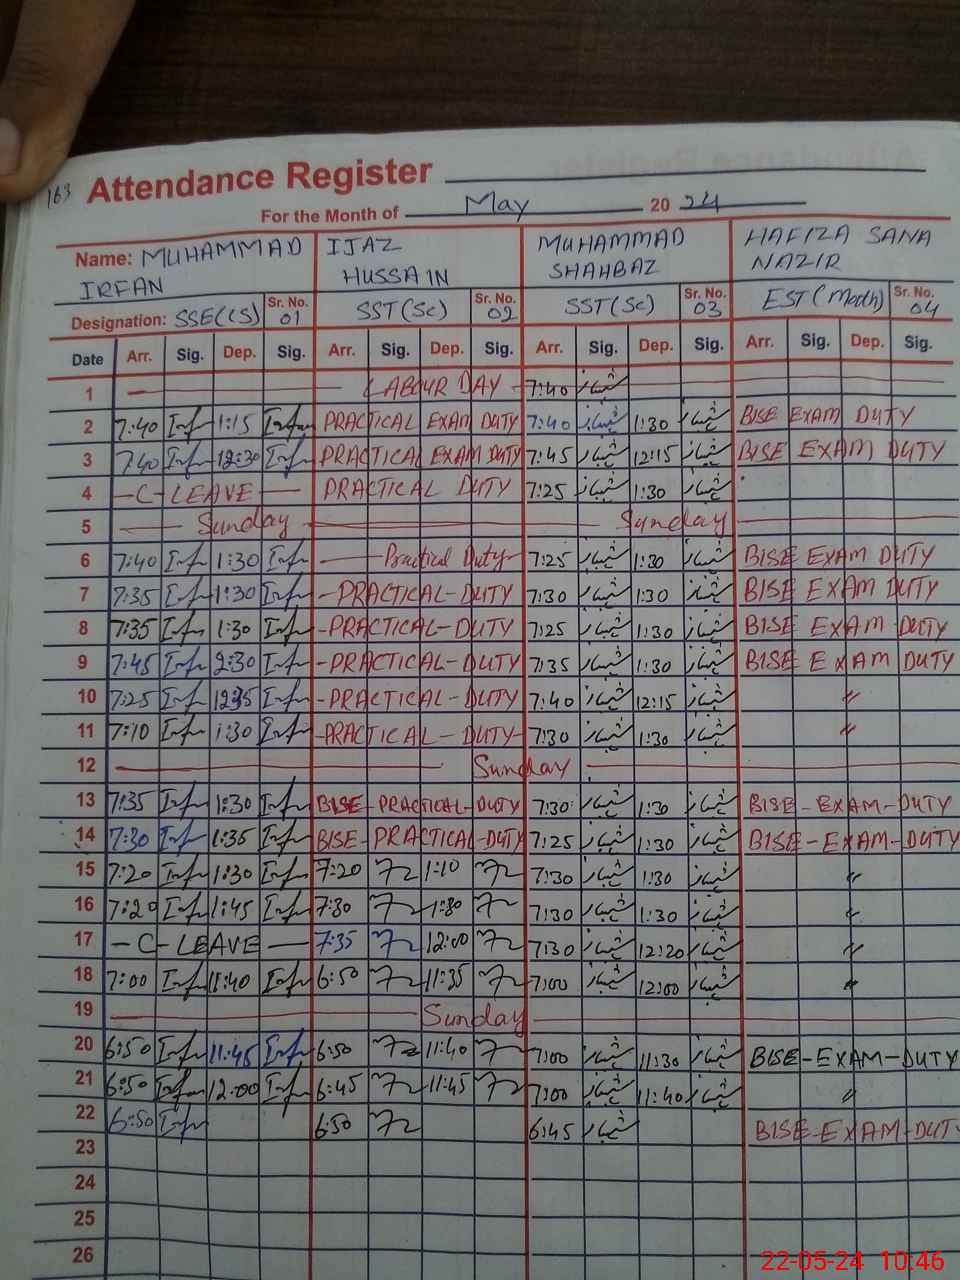 163 Attendance Register
For the Month of May 2024
Name: MUHAMMAD IRFAN IJAZ HUSSAIN MUHAMMAD SHAHBAZ HAFIZA SANA NAZIR
Designation: SSE(CS) Sr. No. 01 SST(Sc) Sr. No. 02 SST(Sc) Sr. No. 03 EST(Math) Sr. No. 04
Date Arr. Sig. Dep. Sig. Arr. Sig. Dep. Sig. Arr. Sig. Dep. Sig. Arr. Sig. Dep. Sig.
1 LABOUR DAY 7:40 شہباز
2 7:40 Irf 1:15 Irfan PRACTICAL EXAM DUTY 7:40 شہباز 1:30 شہباز BISE EXAM DUTY
3 7:40 Irf 12:30 Irf PRACTICAL EXAM DUTY 7:45 شہباز 12:15 شہباز BISE EXAM DUTY
4 -C-LEAVE- PRACTICAL DUTY 7:25 شہباز 1:30 شہباز
5 Sunday Sunday
6 7:40 Irf 1:30 Irf Practical Duty 7:25 شہباز 1:30 شہباز BISE EXAM DUTY
7 7:35 Irf 1:30 Irf -PRACTICAL-DUTY 7:30 شہباز 1:30 شہباز BISE EXAM DUTY
8 7:35 Irf 1:30 Irf -PRACTICAL-DUTY 7:25 شہباز 1:30 شہباز BISE EXAM DUTY
9 7:45 Irf 2:30 Irf -PRACTICAL-DUTY 7:35 شہباز 1:30 شہباز BISE EXAM DUTY
10 7:25 Irf Irf -PRACTICAL-DUTY 7:40 شہباز 12:15 شہباز "
11 7:10 Irf 1:30 Irf -PRACTICAL-DUTY 7:30 شہباز 1:30 شہباز "
12 Sunday
13 7:35 Irf 1:30 Irf BISE-PRACTICAL-DUTY 7:30 شہباز 1:30 شہباز BISE-EXAM-DUTY
14 7:30 Irf 1:35 Irf BISE-PRACTICAL-DUTY 7:25 شہباز 1:30 شہباز BISE-EXAM-DUTY
15 7:20 Irf 1:30 Irf 7:20 1:10 7:30 شہباز 1:30 شہباز "
16 7:20 Irf 1:45 Irf 7:30 1:30 7:30 شہباز 1:30 شہباز "
17 -C-LEAVE- 7:35 12:00 7:30 شہباز 12:20 شہباز "
18 7:00 Irf 11:40 Irf 6:50 11:35 7:00 شہباز 12:00 شہباز "
19 Sunday
20 6:50 Irf 11:45 Irf 6:50 11:40 7:00 شہباز 11:30 شہباز BISE-EXAM-DUTY
21 6:50 Irfan 12:00 Irf 6:45 11:45 7:00 شہباز 11:40 شہباز "
22 6:50 Irf 6:50 6:45 شہباز BISE-EXAM-DUTY
23
24
25
26
22-05-24 10:46